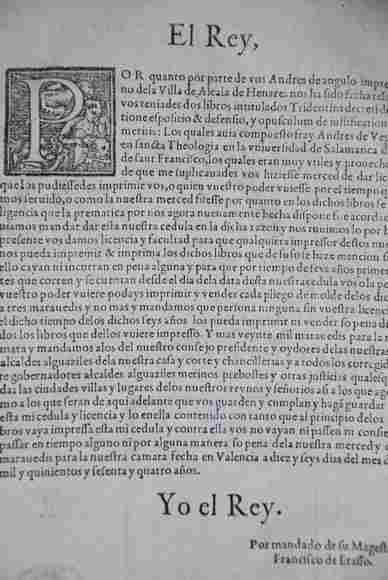 El Rey,
POR quanto por parte de vos Andres de angulo impre
no dela Villa de Alcala de Henare. nos ha sido fecha rela
vos teniades dos libros intitulados Tridentina decret
tione esposicio & defensio, y opusculum de iustification
meritis: Los quales auia compuesto fray Andres de Ve
en sancta Theologia en la vniuersidad de Salamanca d
de sant Francisco, los quales eran muy vtiles y prouecho
de que me suplicauades vos hiziesse merced de dar lic
que los pudiessedes imprimir vos, o quien vuestro poder vuiesse por el tiempo
mos seruido, o como la nuestra merced fuesse por quanto en los dichos libros se
ligencia que la prematica por nos agora nueuamente hecha dispone fue acorda
uiamos mandar dar esta nuestra cedula en la dicha razon y nos tuuimos lo por b
presente vos damos licencia y facultad para que qualquiera impressor destos nu
nos pueda imprimir & imprima los dichos libros que de suso se haze mencion s
ello cayan ni incurran en pena alguna y para que por tiempo de seys años prime
tes que corren y se cuentan desde el dia dela data desta nuestra cedula vos o la pe
vuestro poder vuiere podays imprimir y vender cada pliego de molde delos di
a tres marauedis y no mas y mandamos que persona ninguna sin vuestra licenc
el dicho tiempo delos dichos seys años los pueda imprimir ni vender so pena d
dos los libros que dellos vuiere impresso. Y mas veynte mil marauedis para la n
mara y mandamos alos del nuestro consejo presidente y oydores delas nuestras
alcaldes alguaziles dela nuestra casa y corte y chancillerias y a todos los corregid
te gobernadores alcaldes alguaziles merinos prebostes y otras justicias qualesq
das las ciudades villas y lugares delos nuestros reynos y señorios assi a los que ago
mo a los que seran de aqui adelante que vos guarden y cumplan y hagã guardar
esta mi cedula y licencia y lo enella contenido con tanto que al principio delos
bros vaya impressa esta mi cedula y contra ella vos no vayan ni passen ni consie
passar en tiempo alguno ni por alguna manera so pena dela nuestra merced y d
marauedis para la nuestra camara fecha en Valencia a diez y seys dias del mes d
mil y quinientos y sesenta y quatro años.
Yo el Rey.
Por mandado de su Magest
Francisco de Erasso.